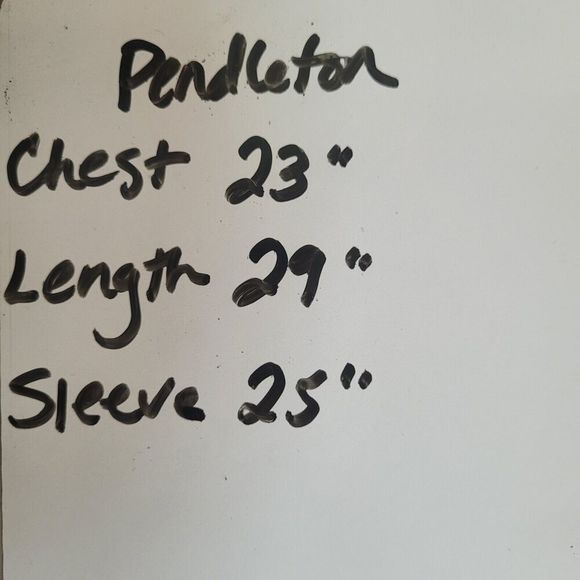 Pendleton
Chest 23"
Length 29"
Sleeve 25"